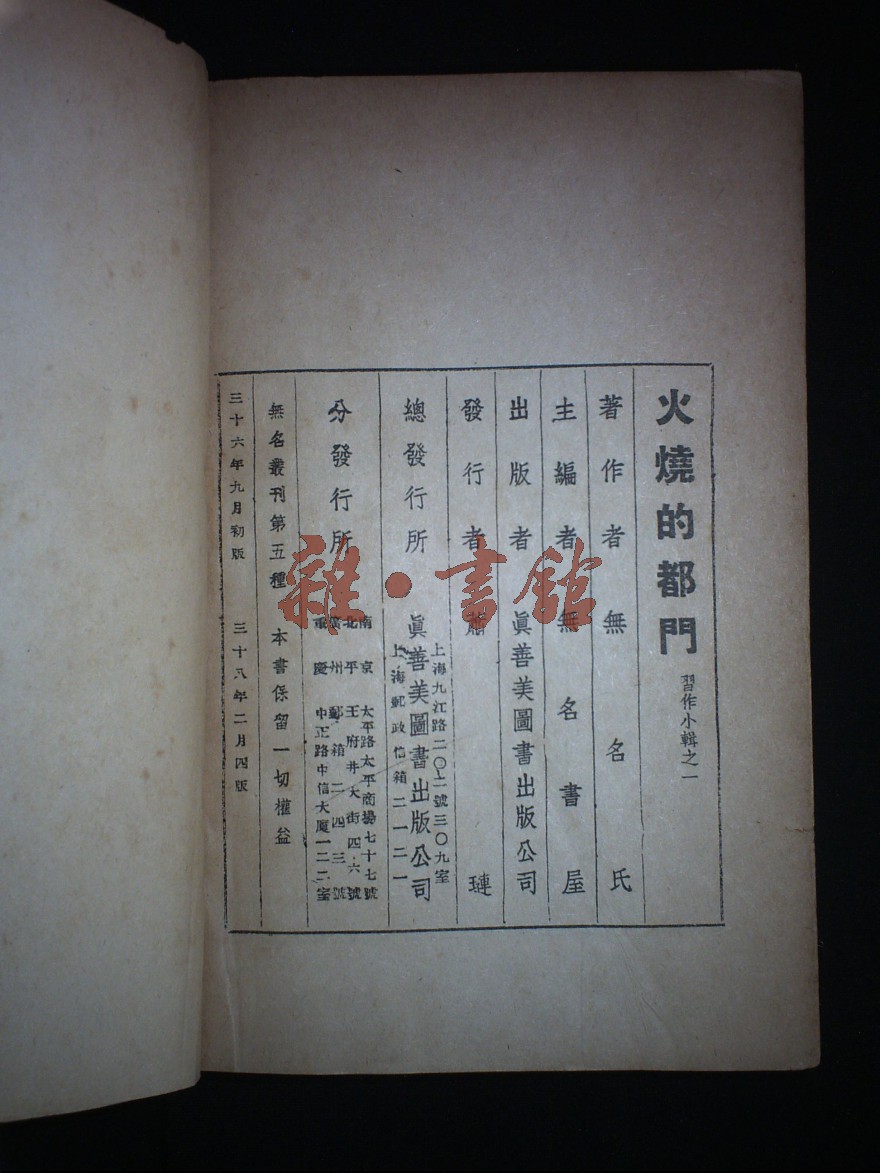 火燒的都門 習作小輯之一
著作者 無名氏
主編者 無名書屋
出版者 眞善美圖書出版公司
發行者 蕭 璉
總發行所 眞善美圖書出版公司
上海九江路二〇二號三〇九室
上海郵政信箱二一二一
分發行所
南京 太平路太平商場七十七號
北平 王府井大街四·六號
廣州 郵箱二四三號
重慶 中正路中信大廈一二二室
無名叢刊第五種 本書保留一切權益
三十六年九月初版 三十八年二月四版
雜·書館